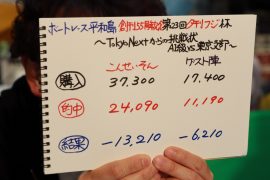 ボートレース平和島 創刊55周年記念 第23回夕刊フジ杯
～Tokyo Nextからの挑戦状
A1級vs.東京支部～
こんせいそん ゲスト陣
購入 37,300 17,400
的中 24,090 11,190
結果 -13,210 -6,210